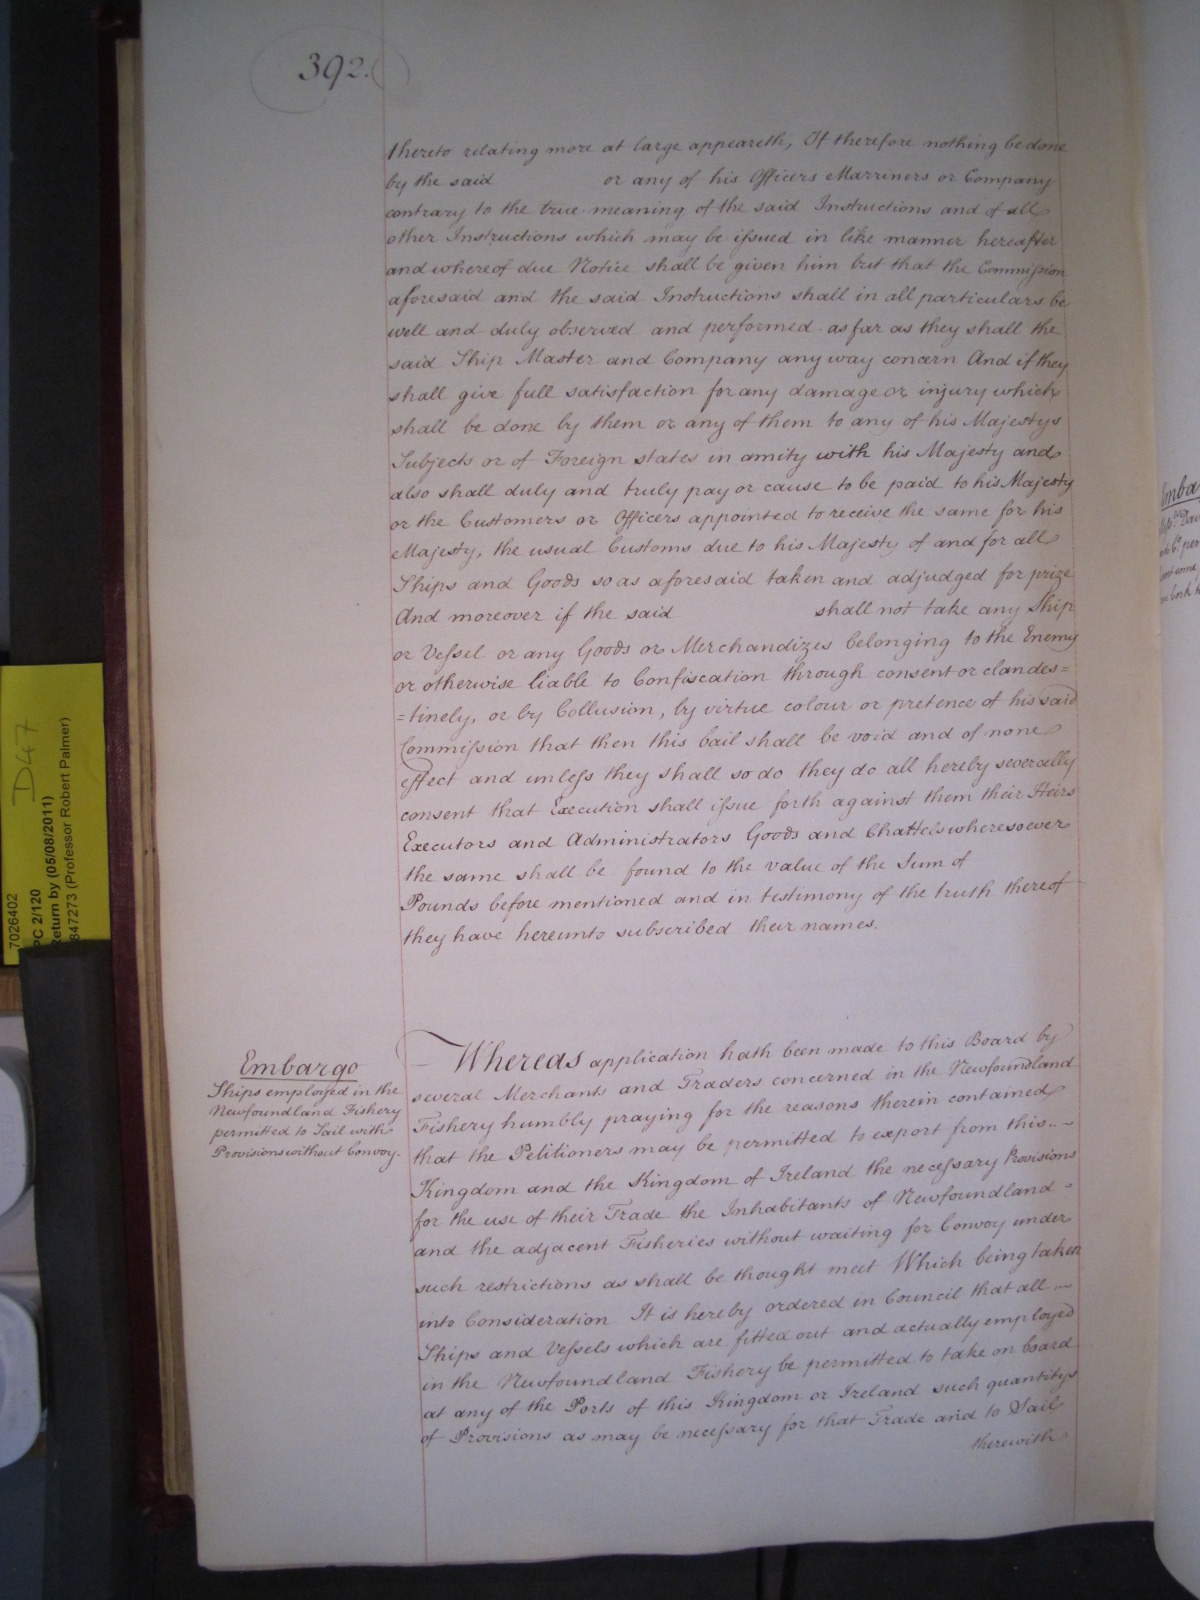 392.
thereto relating more at large appeareth, If therefore nothing be done
by the said or any of his Officers Marriners or Company
contrary to the true meaning of the said Instructions and of all
other Instructions which may be issued in like manner hereafter
and whereof due Notice shall be given him but that the Commission
aforesaid and the said Instructions shall in all particulars be
well and duly observed and performed as far as they shall the
said Ship Master and Company any way concern And if they
shall give full satisfaction for any damage or injury which
shall be done by them or any of them to any of his Majestys
Subjects or of Foreign states in amity with his Majesty and
also shall duly and truly pay or cause to be paid to his Majesty
or the Customers or Officers appointed to receive the same for his
Majesty, the usual Customs due to his Majesty of and for all
Ships and Goods so as aforesaid taken and adjudged for prize
And moreover if the said shall not take any Ship
or Vessel or any Goods or Merchandizes belonging to the Enemy
or otherwise liable to Confiscation through consent or clandes=
=tinely, or by Collusion, by virtue colour or pretence of his said
Commission that then this bail shall be void and of none
effect and unless they shall so do they do all hereby severally
consent that Execution shall issue forth against them their Heirs
Executors and Administrators Goods and Chattels wheresoever
the same shall be found to the value of the Sum of
Pounds before mentioned and in testimony of the truth thereof
they have hereunto subscribed their names.
Embargo
Ships employed in the
Newfoundland Fishery
permitted to Sail with
Provisions without Convoy.
Whereas application hath been made to this Board by
several Merchants and Traders concerned in the Newfoundland
Fishery humbly praying for the reasons therein contained
that the Petitioners may be permitted to export from this
Kingdom and the Kingdom of Ireland the necessary Provisions
for the use of their Trade the Inhabitants of Newfoundland
and the adjacent Fisheries without waiting for Convoy under
such restrictions as shall be thought meet Which being taken
into Consideration It is hereby ordered in Council that all
Ships and Vessels which are fitted out and actually employed
in the Newfoundland Fishery be permitted to take on board
at any of the Ports of this Kingdom or Ireland such quantitys
of Provisions as may be necessary for that Trade and to Sail
therewith
7026402
D47
PC 2/120
Return by (05/08/2011)
847273 (Professor Robert Palmer)